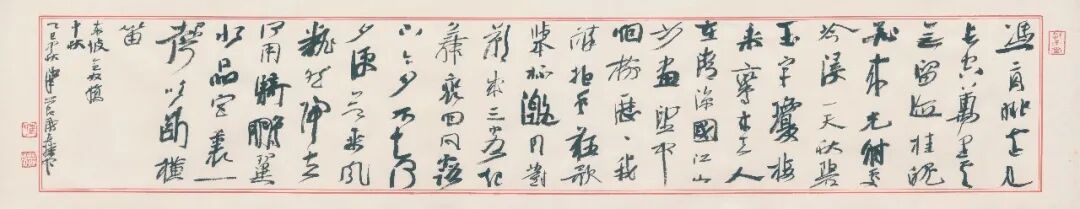 馮高眺遠見
長空萬里雲
無留迹桂魄
飛來光射處
冷浸一天秋碧
玉宇瓊樓
乘鸞來去人
在清涼國江山
如畫望中
烟樹歷〻我
醉拍手狂歌
舉杯邀月對
影成三客起
舞徘徊風露
下今夕不知何
夕便欲乘風
翻然歸去
何用騎鵬翼
水晶宮裏一
聲吹斷橫
笛
東坡念奴嬌
中秋
乙巳中秋